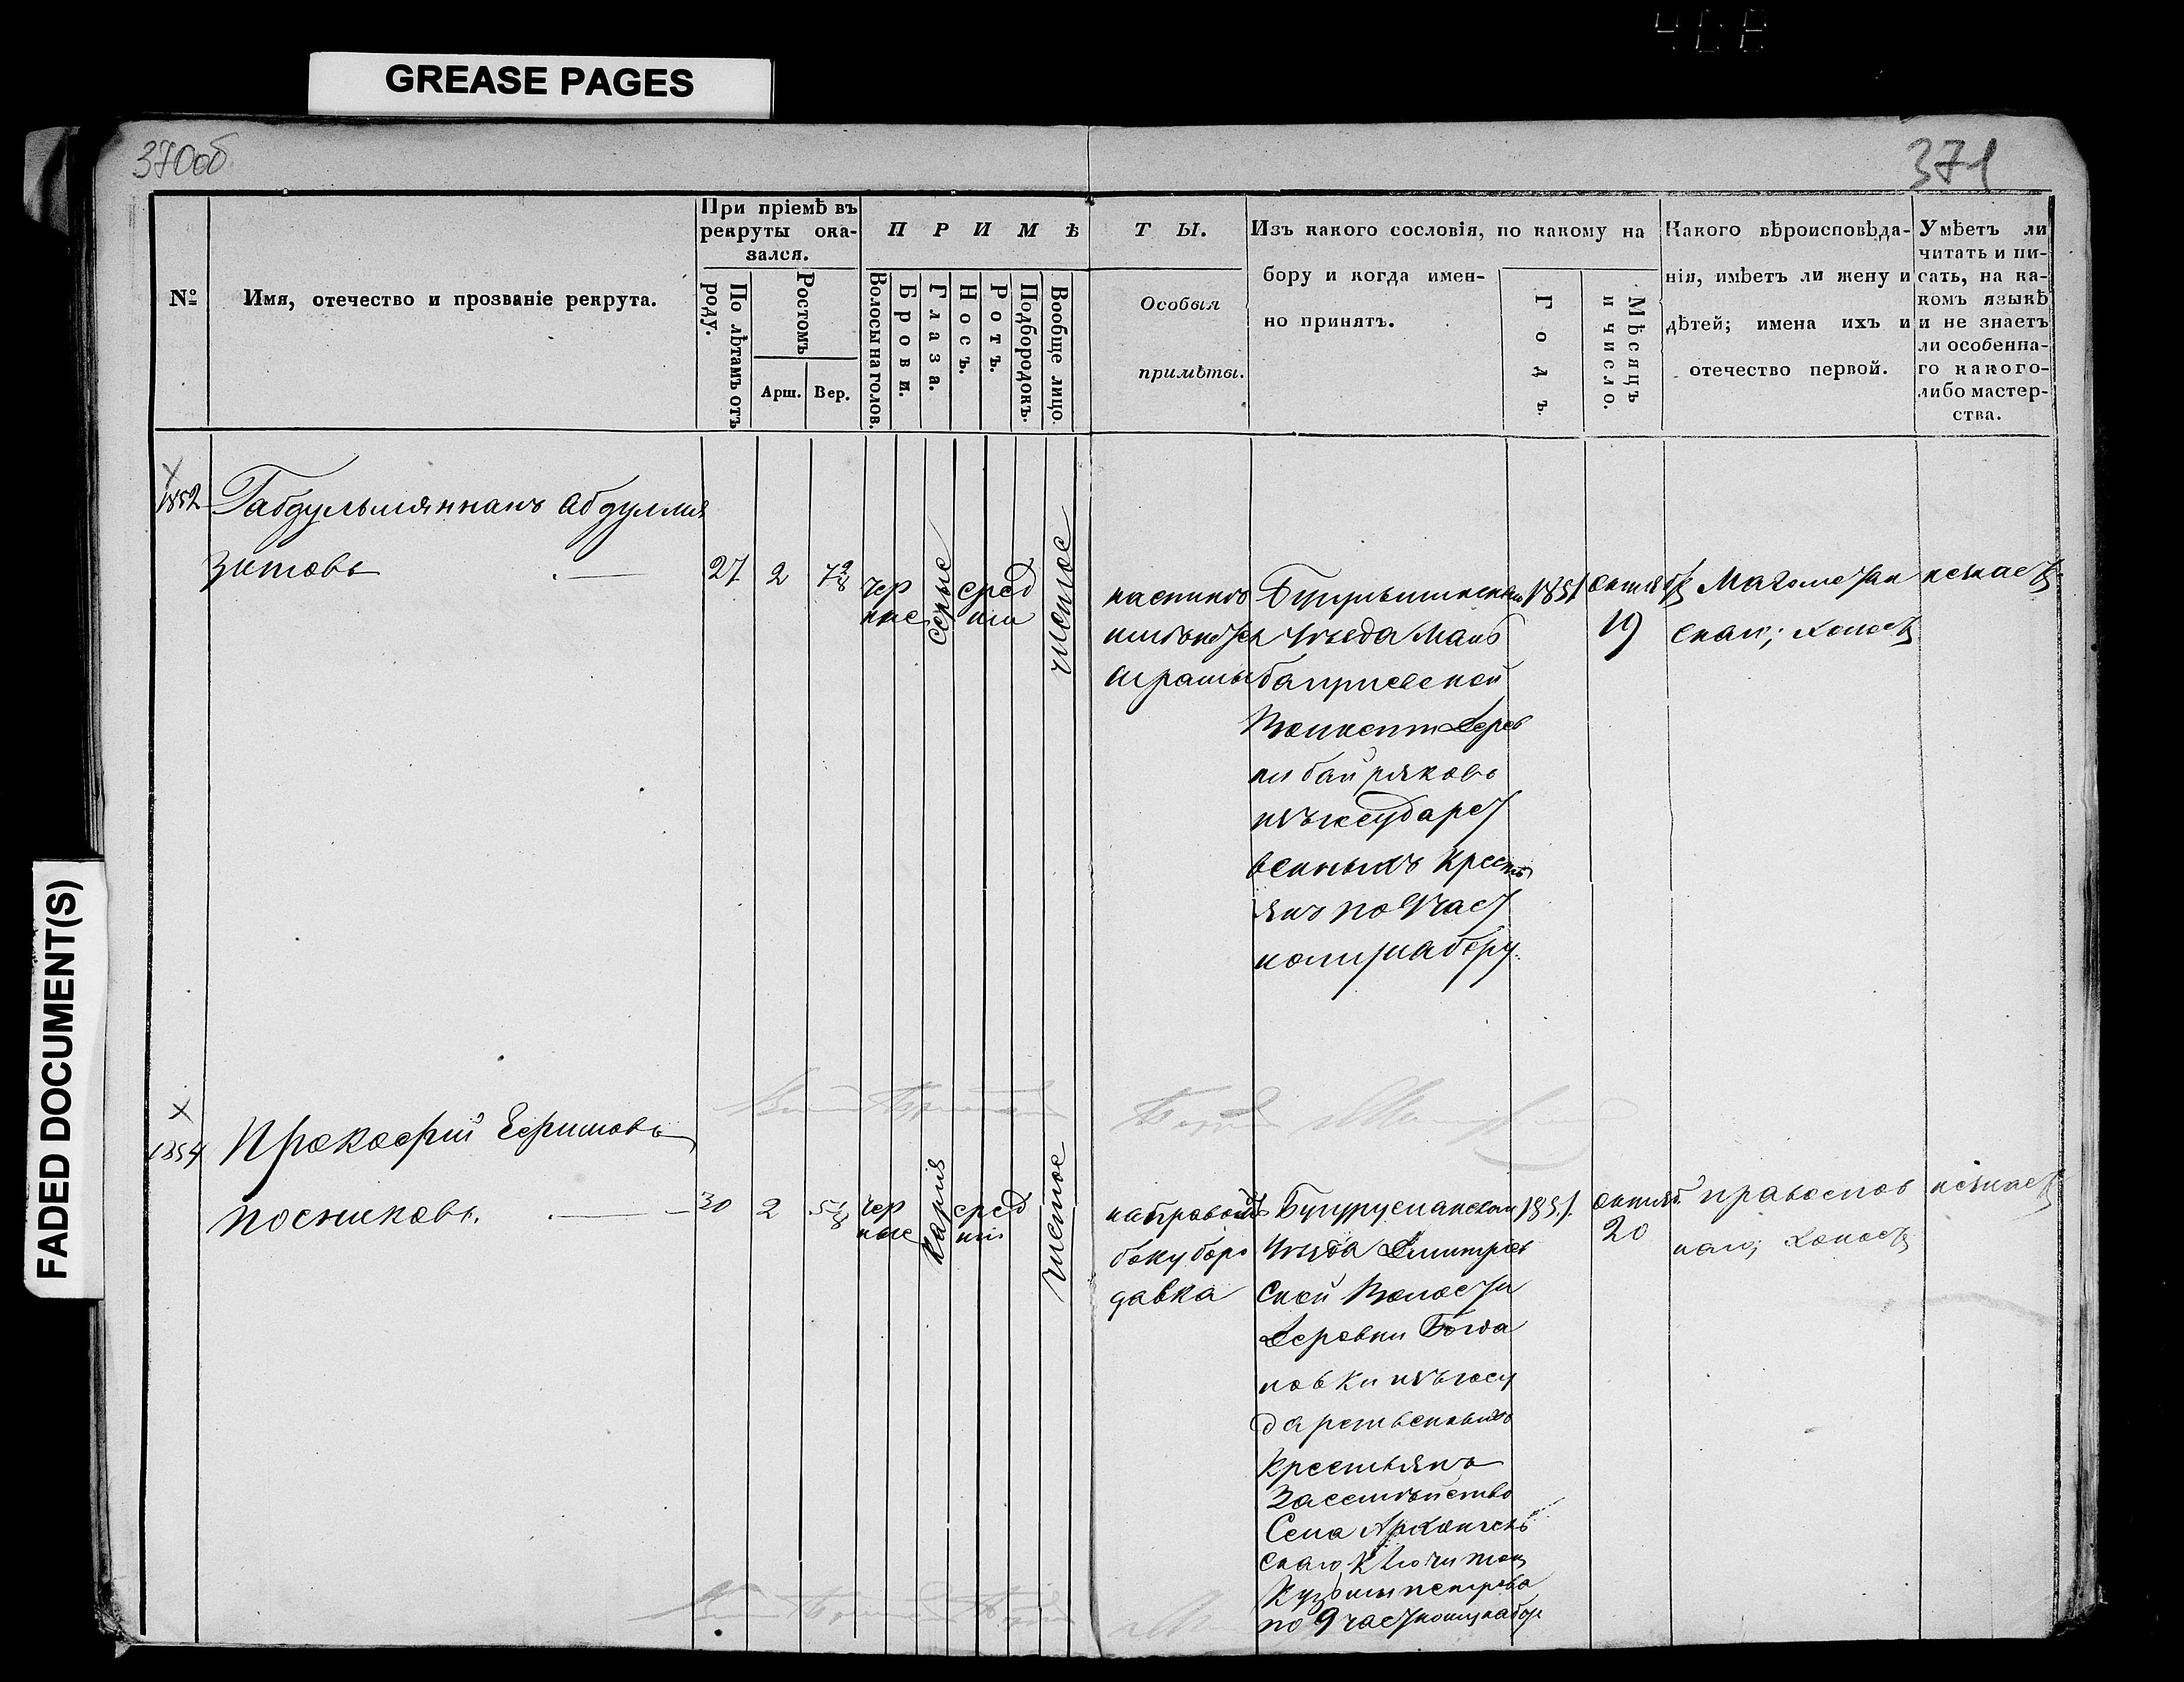 GREASE PAGES
FADED DOCUMENT(S)
370об
371
№
Имя, отечество и прозваніе рекрута.
При пріемѣ въ
рекруты ока-
зался.
По лѣтамъ отъ
роду.
Ростомъ
Арш.
Вер.
ПРИМѢ
Волосы на голов.
Брови.
Глаза.
Носъ.
Ротъ.
Подбородокъ.
Вообще лицо.
ТЫ.
Особыя
примѣты.
Изъ какого сословія, по какому на
бору и когда имен-
но принятъ.
Годъ.
Мѣсяцъ
и число.
Какого вѣроисповѣда-
нія, имѣетъ ли жену и
дѣтей; имена ихъ и
отечество первой.
Умѣетъ ли
читать и пи-
сать, на ка-
комъ языкѣ
и не знаетъ
ли особенна-
го какого-
либо мастер-
ства.
1852
Габдульмяннанъ Абдулмя
зитовъ
27
2
7 2/8
чер
ные
серые
сред
нiи
чистое
на спине
имеются
шрамы
Бугульминскаго
Уезда
Волости Дерев
ни байряковъ
изъ государст
венныхъ кресть
янъ по 9 част
ному набору.
1851
октяб
19
Магометан
скаго; холост
не знает
1854
Прокофий Ефимовъ
посниковъ.
30
2
5 1/8
чер
ные
Кария
сред
нiи
чистое
на правом
боку боро
давка
Бугурусланскаго
Уезда Дмитриев
Ской Волости
Деревни Богда
новки изъ госу
дарственныхъ
Крестьянъ
За семейство
Села
скаго Ключи тож
Кузьмы петрова
по 9 частному набору
1851.
октяб.
20
православ
наго; холост
не знает